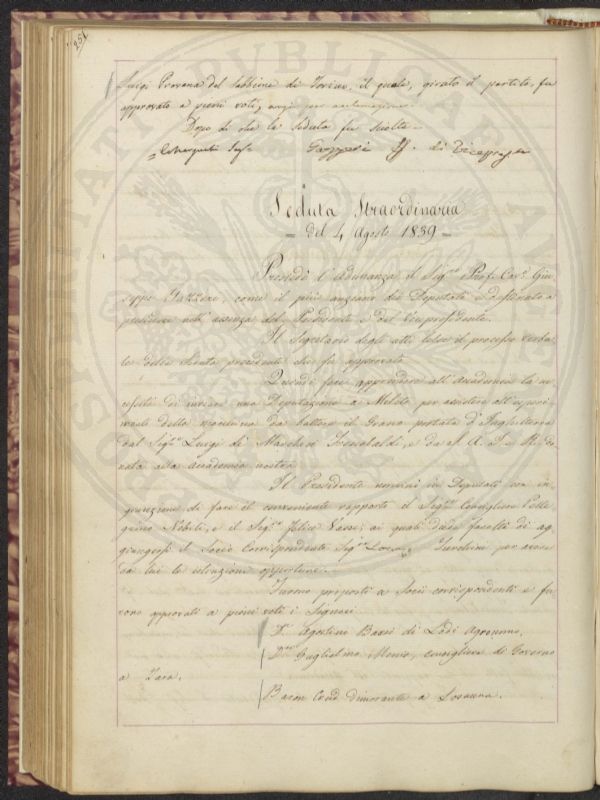 251
Luigi Provana del Sabbione di Torino, il quale, girato il partito, fu
approvato a pieni voti, anzi per acclamazione.
Dopo di che la Seduta fu sciolta.
Gazzeri ff. di Vicepresidente
Seduta Straordinaria
= del 4 Agosto 1839 =
Presiedè l'Adunanza il Sigre Prof. Cav. Giu-
seppe Gazzeri, come il più anziano dei Deputati destinato a
presiedere nell'assenza del Presidente e del Vicepresidente.
Il Segretario degli atti lesse il processo verba-
le della Seduta precedente che fu approvato.
Quindi fece apprendere all'Accademia la ne-
cessità di inviare una Deputazione a Meleto per assistere all'esperi-
mento della macchina da battere il Grano portata d'Inghilterra
dal Sigre Luigi dei Marchesi Frescobaldi, e da S. A. I. e R. do-
nata alla Accademia nostra.
Il Presidente nominò in Deputati con in-
giunzione di fare il conveniente rapporto il Sigre Consigliere Pelle-
grino Nobili, e il Sigre Felice Vasse; ai quali diede facoltà di ag-
giungersi il Socio Corrispondente Sigre Turchini per avere
da lui le istruzioni opportune.
Furono proposti a Socii corrispondenti e fu-
rono approvati a pieni voti i Signori
Dr Agostino Bassi di Lodi Agronomo.
Guglielmo Menis, Consigliere di Governo
a Zara.
Baron Crud dimorante a Losanna.